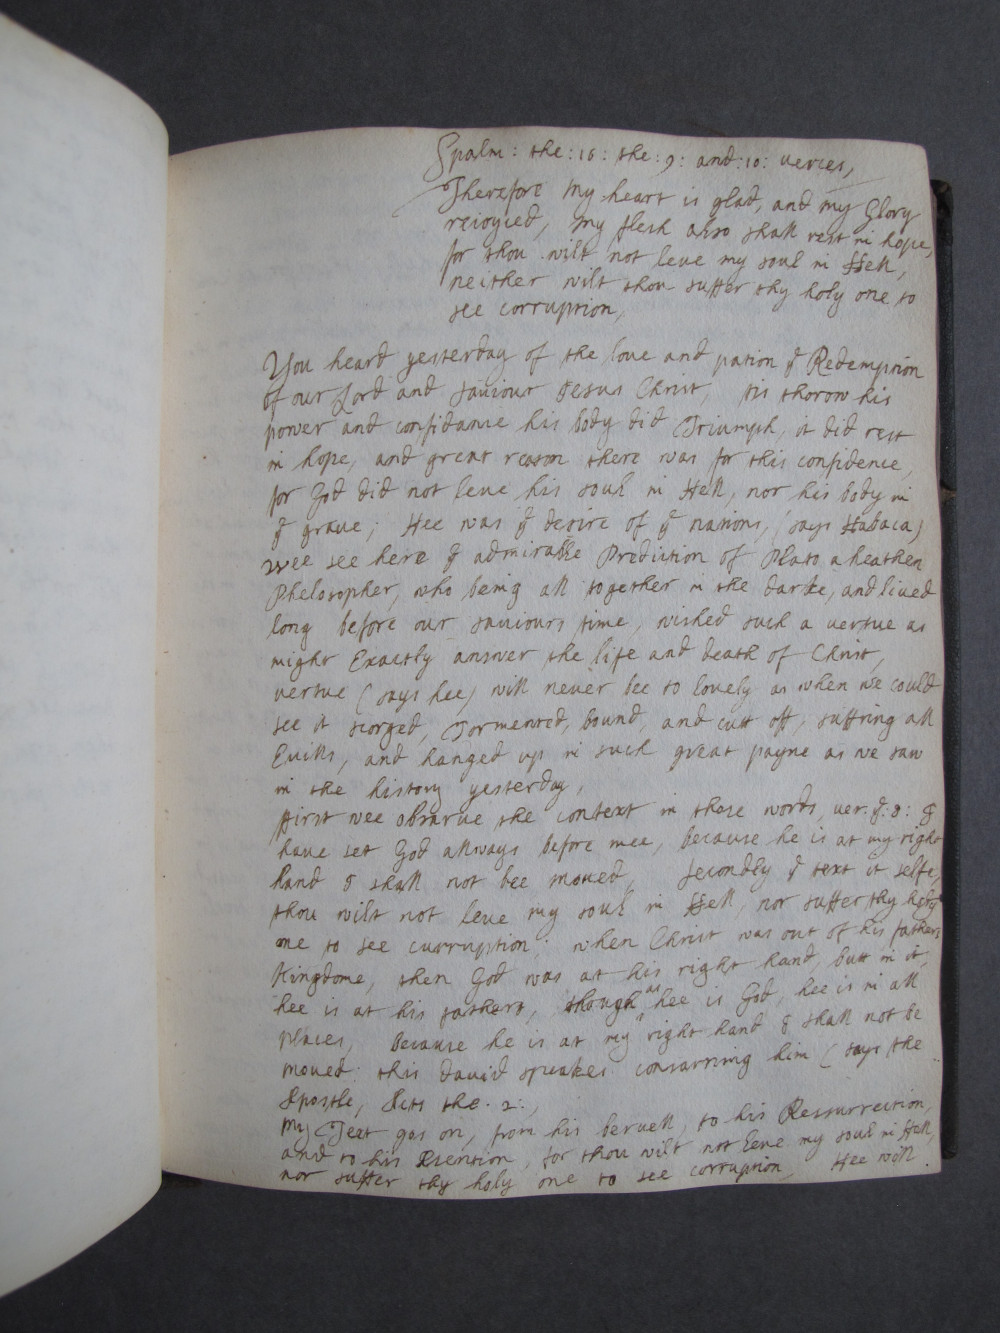 Spalm: the: 16: the: 9: and: 10: verces,
Therefore my heart is glad, and my Glory
reioyced, my flesh also shall rest in hope,
for thou wilt not leve my soul in Hell,
neither wilt thou suffer thy holy one to
see corruption,
You heard yesterday of the love and pation ye Redemption
of our Lord and saviour Jesus Christ, tis thorow his
power and confidance his body did Triumph, it did rest
in hope, and great reason there was for this confidence,
for God did not leve his soul in Hell, nor his body in
ye grave; Hee was ye desire of ye nations, (says Habaca)
wee see here ye admirable Prediction of Plato a heathen
Philosopher, who being all together in the darke, and lived
long before our saviours time, wished such a vertue as
might Exactly answer the life and death of Christ,
vertue (says hee) will never bee so lovely as when we could
see it scorged, Tormented, bound, and cutt off, suffring all
Evills, and hanged up in such great payne as we saw
in the history yesterday,
first wee obsarve the context in these words, ver. ye: 8: I
have set God allways before mee, because he is at my right
hand I shall not bee moved, secondly ye text it selfe,
thou wilt not leve my soul in Hell, nor suffer thy holy
one to see curruption; when Christ was out of his fathers
Kingdome, then God was at his right hand, butt in it,
hee is at his fathers, though as hee is God, hee is in all
places, because he is at my right hand I shall not be
moved: this david speakes consarning him (says the
Apostle, Acts the. 2:,
my Text gos on, from his beruell, to his Ressurrection,
and to his Asention, for thou wilt not leve my soul in Hell,
nor suffer thy holy one to see corruption, Hee will